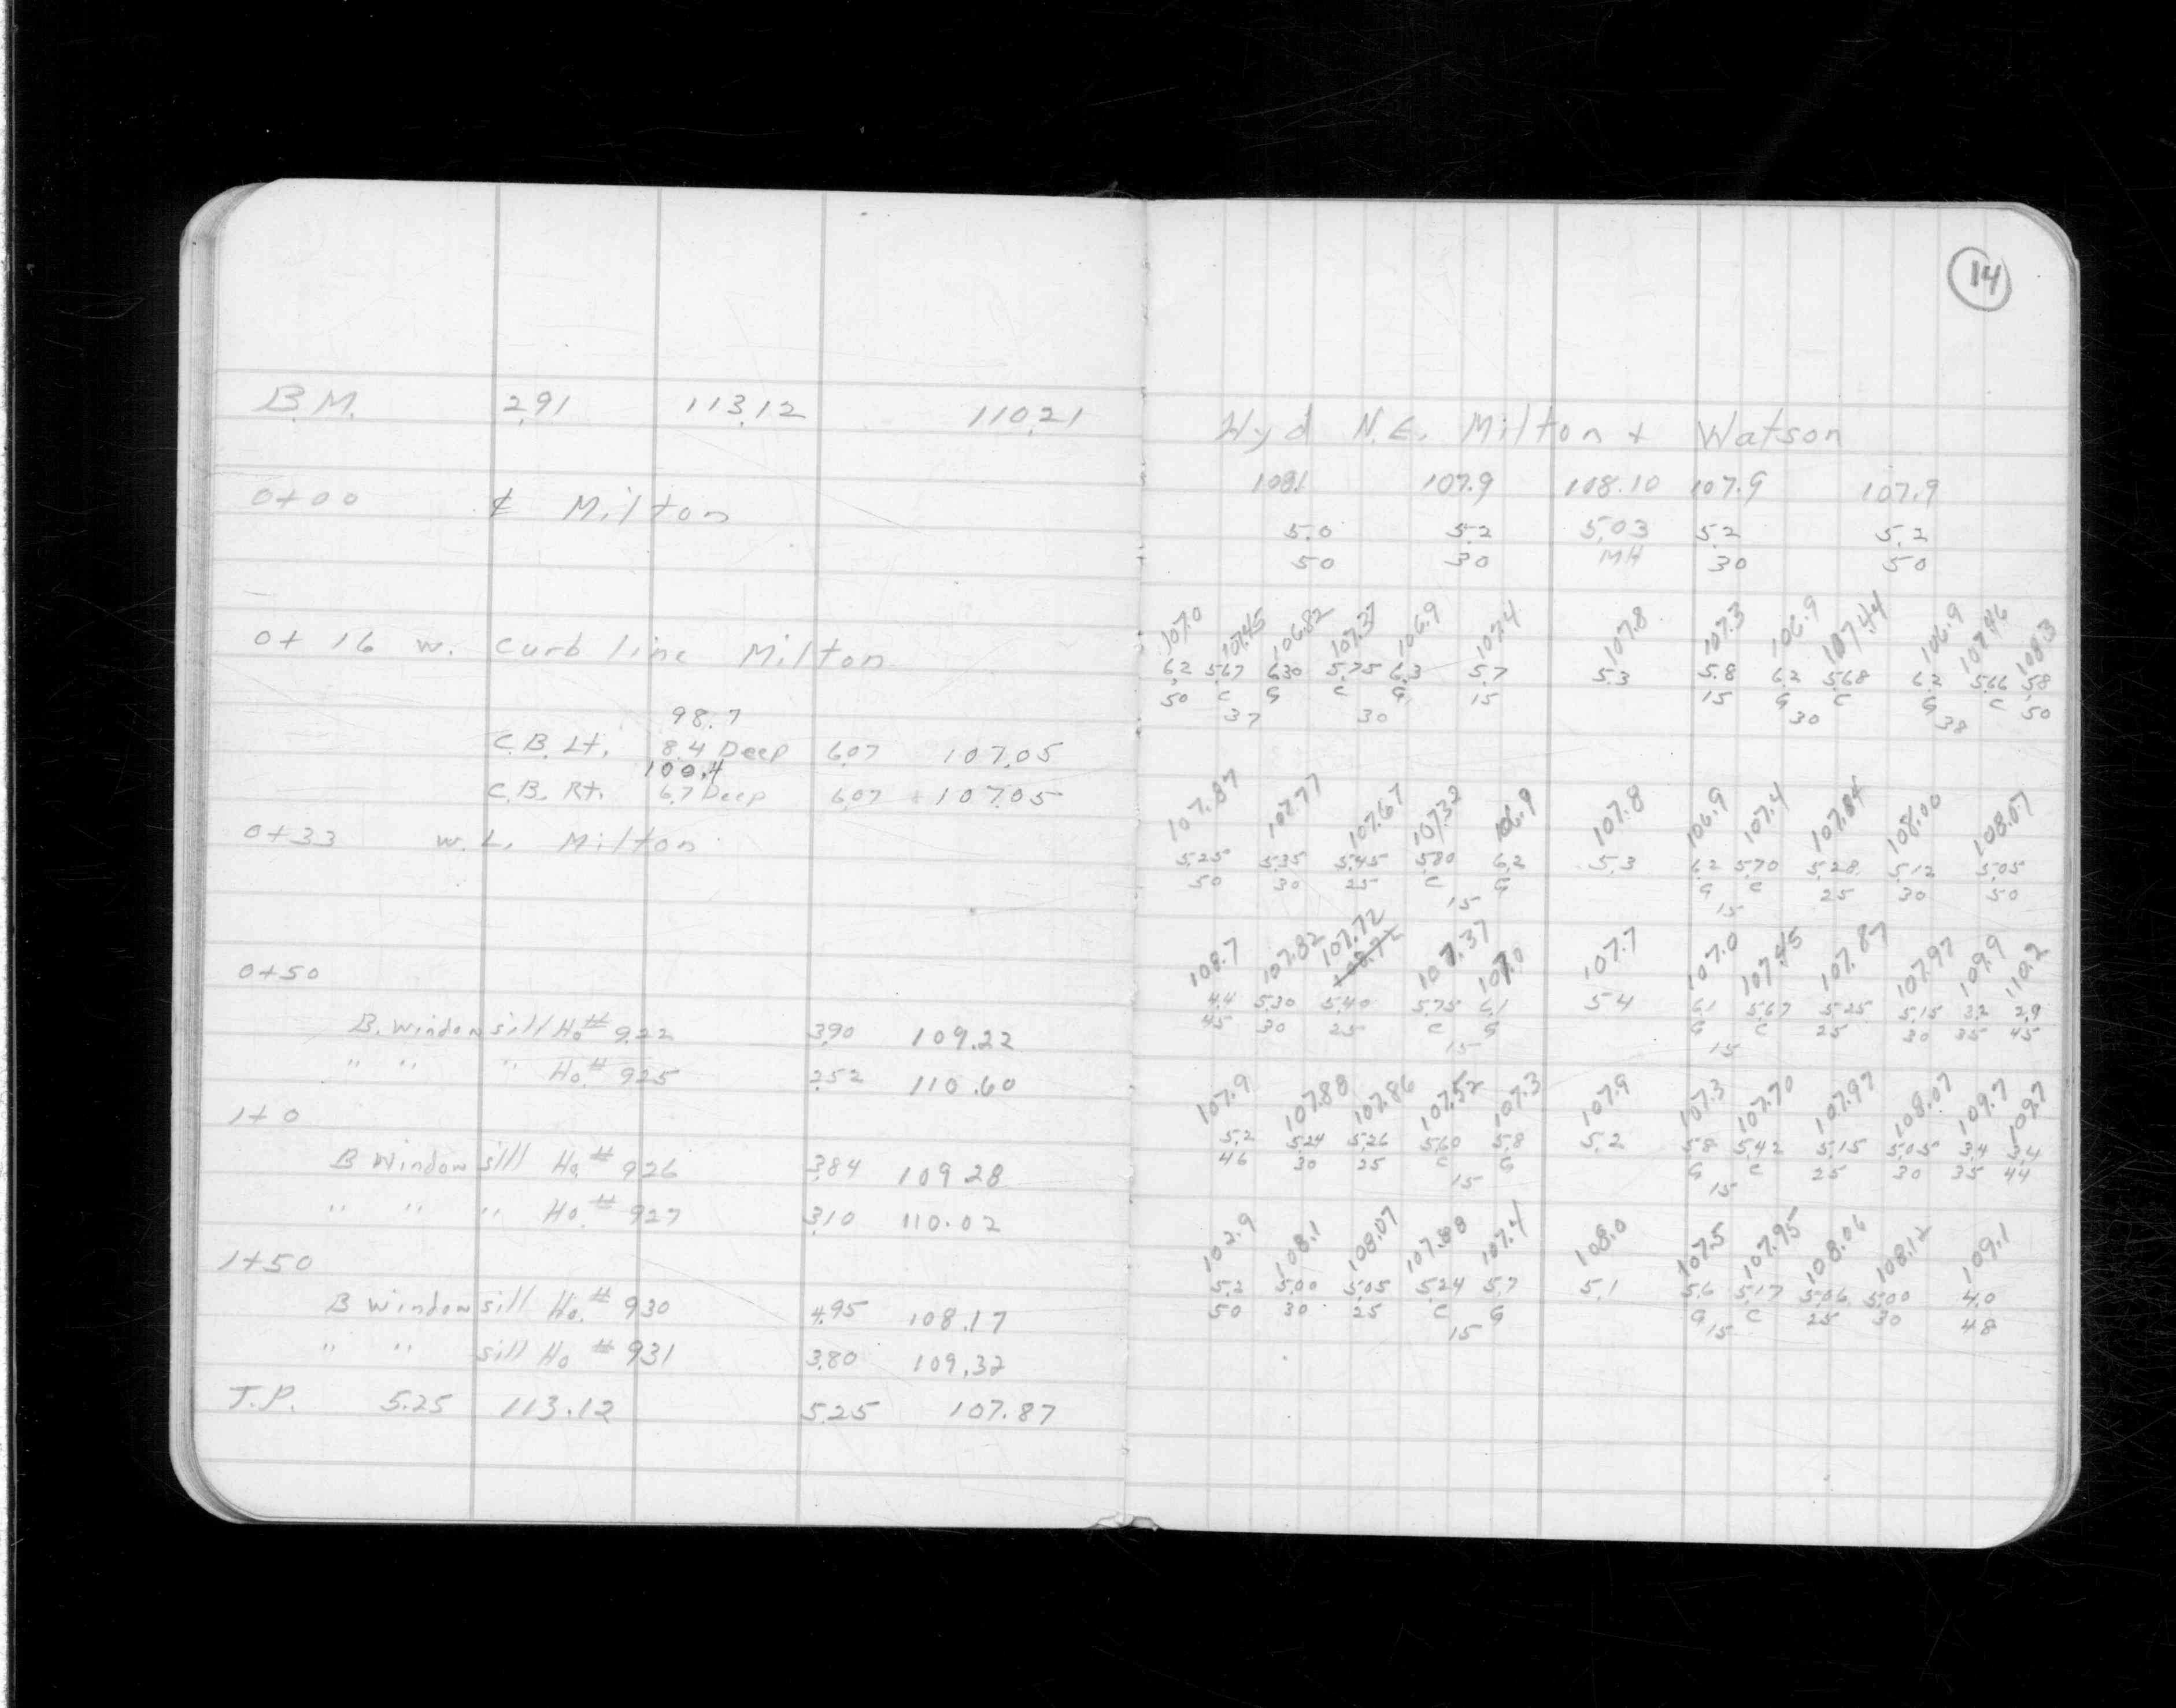 14
B.M. 2.91 113.12 110.21
Hyd N.E. Milton + Watson
0+00 ₵ Milton
108.1 107.9 108.10 107.9 107.9
5.0 5.2 5.03 5.2 5.2
50 30 MH 30 50
0+16 w. curb line Milton
107.0 107.45 106.82 107.37 106.9 107.4 107.8 107.3 106.9 107.44 106.9 107.46 108.3
6.2 5.67 6.30 5.75 6.3 5.7 5.3 5.8 6.2 5.68 6.2 5.66 5.8
50 C G C G 15 15 G C G C 50
37 30 30 38
98.7
C.B. Lt. 8.4 Deep 6.07 107.05
100.4
C.B. Rt. 6.7 Deep 6.07 107.05
0+33 W.L. Milton
107.87 107.77 107.67 107.32 106.9 107.8 106.9 107.4 107.84 108.00 108.07
5.25 5.35 5.45 5.80 6.2 5.3 6.2 5.70 5.28 5.12 5.05
50 30 25 C G G C 25 30 50
15 15
0+50
108.7 107.82 107.72 107.37 107.0 107.7 107.0 107.45 107.87 107.97 109.9 110.2
4.4 5.30 5.40 5.75 6.1 5.4 6.1 5.67 5.25 5.15 3.2 2.9
45 30 25 C G G C 25 30 35 45
15 15
B. Window sill Ho # 922 3.90 109.22
" " " Ho. # 925 2.52 110.60
1+0
107.9 107.88 107.86 107.52 107.3 107.9 107.3 107.70 107.97 108.07 109.7 109.7
5.2 5.24 5.26 5.60 5.8 5.2 5.8 5.42 5.15 5.05 3.4 3.4
46 30 25 C G G C 25 30 35 44
15 15
B Window sill Ho. # 926 3.84 109.28
" " " Ho. # 927 3.10 110.02
1+50
107.9 108.1 108.07 107.88 107.4 108.0 107.5 107.95 108.06 108.12 109.1
5.2 5.00 5.05 5.24 5.7 5.1 5.6 5.17 5.06 5.00 4.0
50 30 25 C G G C 25 30 48
15 15
B Window sill Ho. # 930 4.95 108.17
" " sill Ho # 931 3.80 109.32
T.P. 5.25 113.12 5.25 107.87